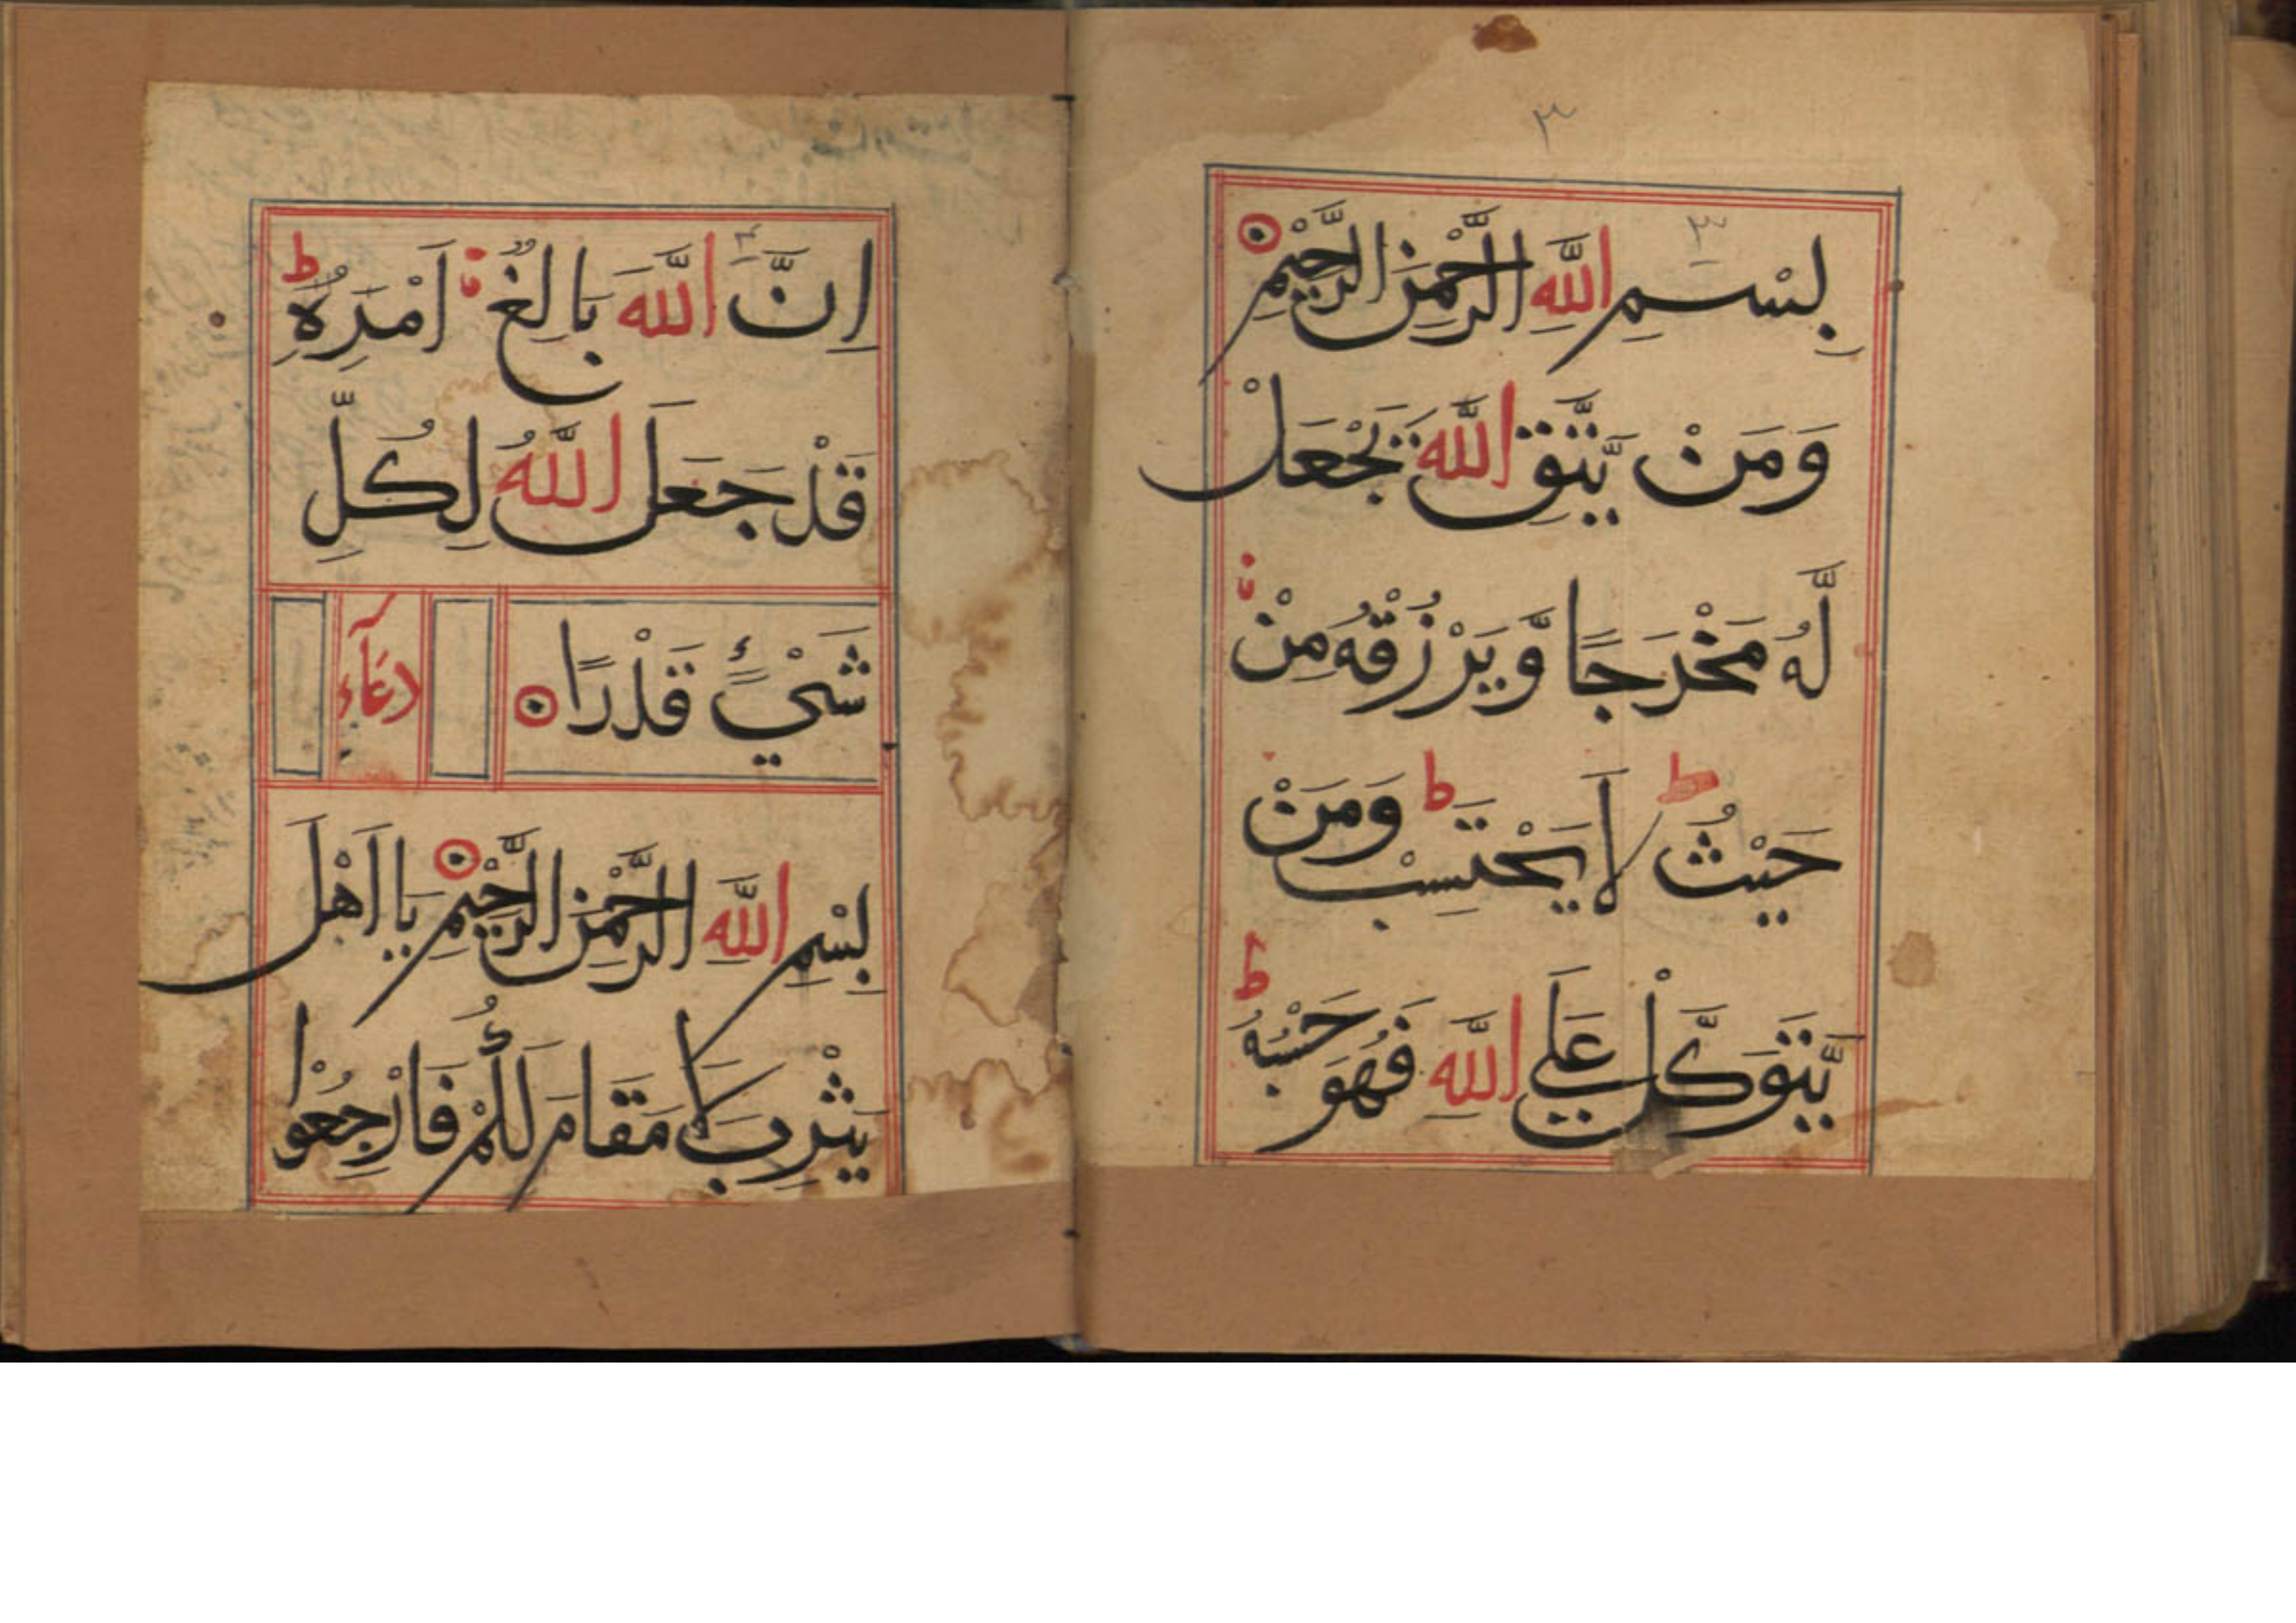 ٣
بِسْمِ اللّٰهِ الرَّحْمٰنِ الرَّحِيْمِ
وَمَنْ يَّتَّقِ اللّٰهَ يَجْعَلْ
لَّهُ مَخْرَجًا وَّيَرْزُقْهُ مِنْ
حَيْثُ ط لَا يَحْتَسِبْ ط وَمَنْ
يَّتَوَكَّلْ عَلَي اللّٰهِ فَهُوَ حَسْبُهُ ط
اِنَّ اللّٰهَ بَالِغُ اَمْرِهٖ ط
قَدْ جَعَلَ اللّٰهُ لِكُلِّ
شَيْءٍ قَدْرًا
دعَآء
بِسْمِ اللّٰهِ الرَّحْمٰنِ الرَّحِيْمِ يَا اَهْلَ
يَثْرِبَ لَا مَقَامَ لَكُمْ فَارْجِعُوْا